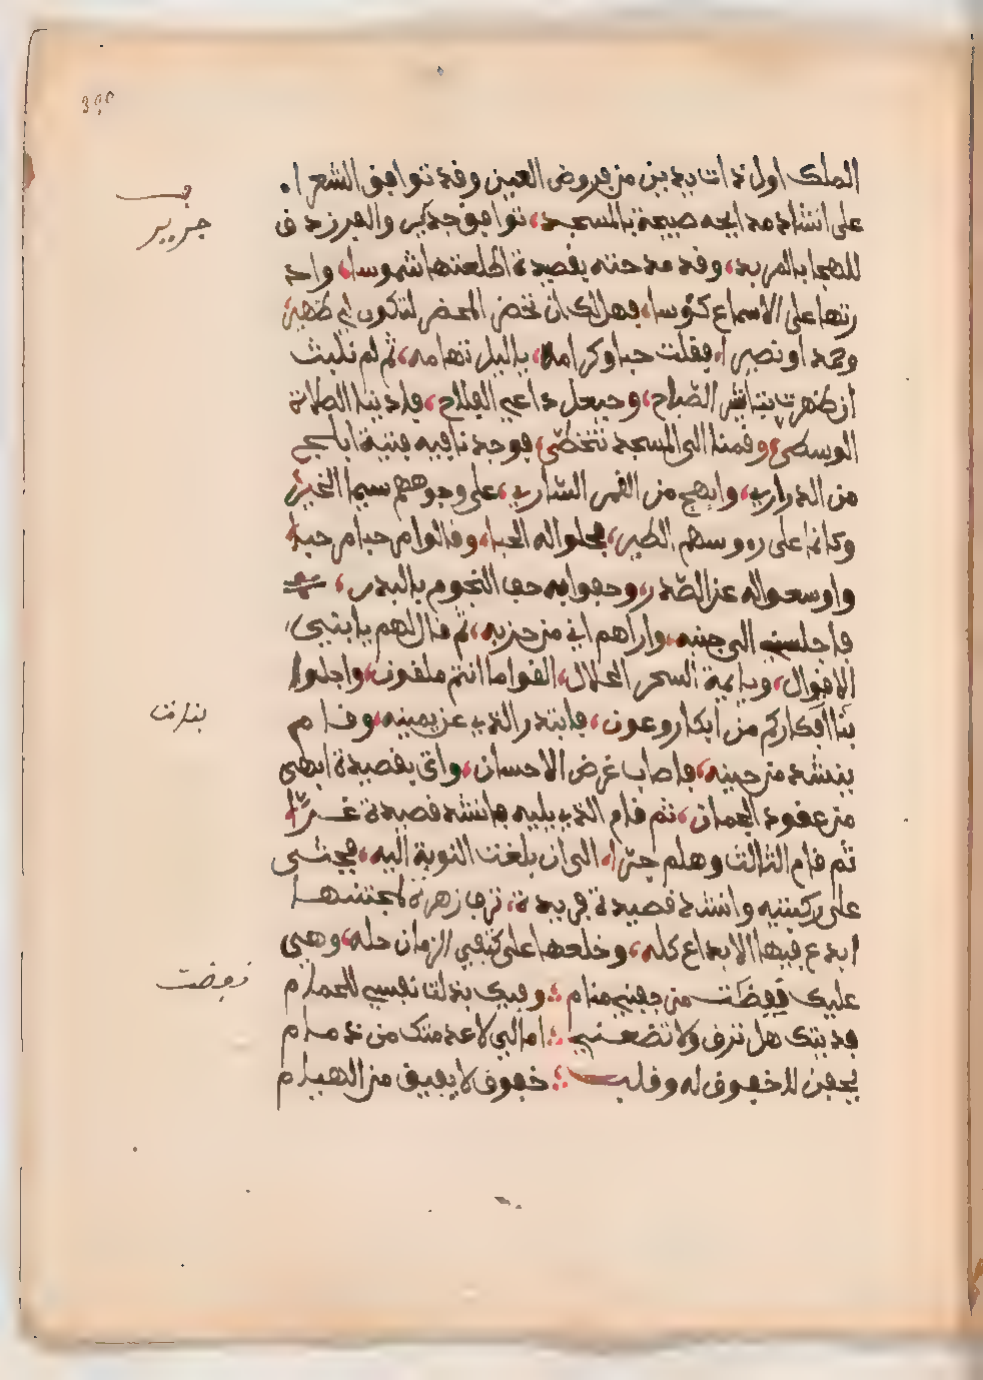 الملك اول ذات يدين من فروض العين وقد توافق الشعرا
على انشاد مدايحه صبيحة بالمسجد، توافق جرير والفرزدق
للهجا بالمربد، وقد مدحته بقصيدة اطلعتها شموسا، واد
رتها على الاسماع كئوسا، فهل لك ان تحضر المحضر لتكون لي ظهيرا
ومجدا ونصيرا، فقلت حبا وكرامه، يا ليل تهامه، ثم لم نلبث
ان ظهرت تباشر الصباح، وحيعل داعي الفلاح، فادينا الصلاة
الوسطى، وقمنا الى المسجد نتخطى، فوجدنا فيه فتية ابلج
من الدراري، وابهج من القمر الساري، على وجوههم سيما الخير،
وكانما على رءوسهم الطير، فحلوا له الحبا، وقالوا مرحبا مرحبا،
واوسعوا له عن الصدر، وحفوا به حف النجوم بالبدر،
فاجلسني الى جنبه، واراهم اني من حزبه، ثم قال لهم يا بني
الاقوال، ويا يمة السحر الحلال، القوا ما انتم ملقون، واجلوا
بنا افكاركم من ابكار وعون، فابتدر الذي عن يمينه، وقام
ينشد من حينه، فاصاب غرض الاحسان، واتى بقصيدة ابهى
من عقود الجمان، ثم قام الذي يليه فانشد قصيدة غرا،
ثم قام الثالث وهلم جرا، الى ان بلغت النوبة اليه، فجثى
على ركبتيه وانشد قصيدة فريدة، تزجا زهرة لمجتنيها
ابدع فيها الابداع كله، وخلعها على كتفي الزمان حله، وهي
عليك قوضت من جفني منام ؛ وفيك بذلت نفسي للحمام
فديتك هل ترق ولا تضعني ؛ امالي لا عدمتك من ذمام
بجفن لا خفوق له وقلب ؛ خفوق لا يفيق من الهيام
جرير
بنات
قوضت